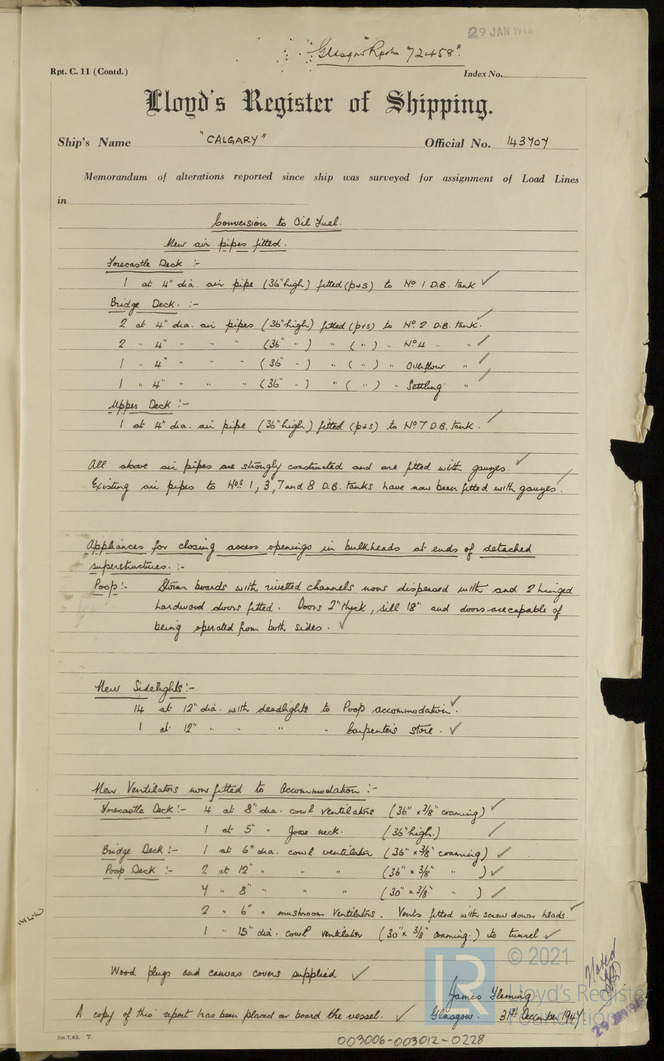 29 JAN
Glasgow Rpt No 72458.
Rpt. C. 11 (Contd.)
Index No.
Lloyd's Register of Shipping.
Ship's Name "CALGARY" Official No. 143707
Memorandum of alterations reported since ship was surveyed for assignment of Load Lines
in
Conversion to Oil Fuel.
New air pipes fitted.
Forecastle Deck :-
1 at 4" dia. air pipe (36" high) fitted (p+s) to No 1 D.B. tank ✓
Bridge Deck. :-
2 at 4" dia. air pipes (36" high) fitted (p+s) to No 2 D.B. tank. ✓
2 " 4" " " (36" " ) " ( " ) " No 4 " " ✓
1 " 4" " " (36" " ) " ( " ) " Overflow " ✓
1 " 4" " " (36" " ) " ( " ) " Settling " ✓
Upper Deck :-
1 at 4" dia. air pipe (36" high) fitted (p+s) to No 7 D.B. tank. ✓
All above air pipes are strongly constructed and are fitted with gauzes. ✓
Existing air pipes to Nos 1, 3, 7 and 8 D.B. tanks have now been fitted with gauzes. ✓
Appliances for closing access openings in bulkheads at ends of detached
superstructures. :-
Poop :- Storm boards with rivetted channels now dispensed with and 2 hinged
hardwood doors fitted. Doors 2" thick, sill 18" and doors are capable of
being operated from both sides. ✓
New Sidelights :-
14 at 12" dia. with deadlights to Poop accommodation ✓.
1 at 12" " " " " Carpenter's store. ✓
New Ventilators now fitted to Accommodation :-
Forecastle Deck :- 4 at 8" dia. cowl ventilators (36" x 3/8" coaming) ✓
1 at 5" " Goose neck. (36" high.) ✓
Bridge Deck :- 1 at 6" dia. cowl ventilator (36" x 3/8" coaming) ✓
Poop Deck :- 2 at 12" " " " (36" x 3/8" " ) ✓
4 " 8" " " " (30" x 3/8" " ) ✓
2 " 6" " mushroom ventilators. Vents fitted with screw down heads. ✓
1 " 15" dia. cowl ventilator (30" x 3/8" coaming.) to tunnel ✓
Wood plugs and canvas covers supplied ✓
James Fleming
A copy of this report has been placed on board the vessel. ✓ Glasgow 31st December 1947
Noted
5m.7,42. T.
003006-003012-0228
LR
© 2021
Lloyd's Register
Foundation